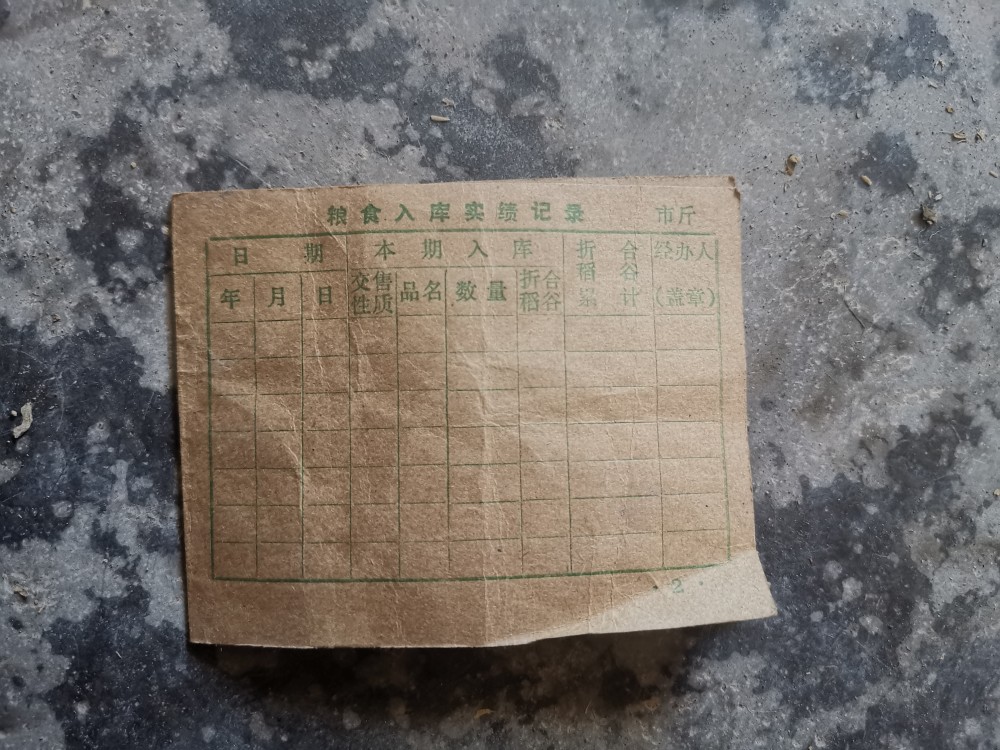 粮食入库实绩记录 市斤
日期 本期入库 折合稻谷累计 经办人(盖章)
年 月 日 交售性质 品名 数量 折合稻谷
2